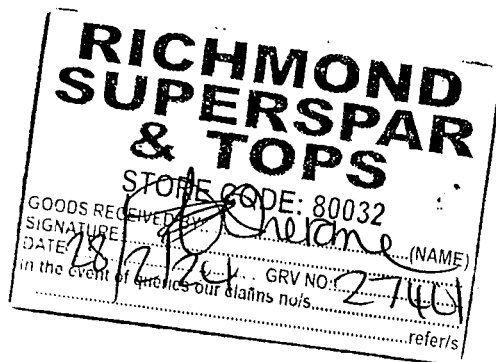 RICHMOND
SUPERSPAR
& TOPS
STORE CODE: 80032
GOODS RECEIVED BY: Cherone (NAME)
SIGNATURE:
DATE: 28/2/24 GRV NO.: 27401
in the event of queries our claims no/s
refer/s